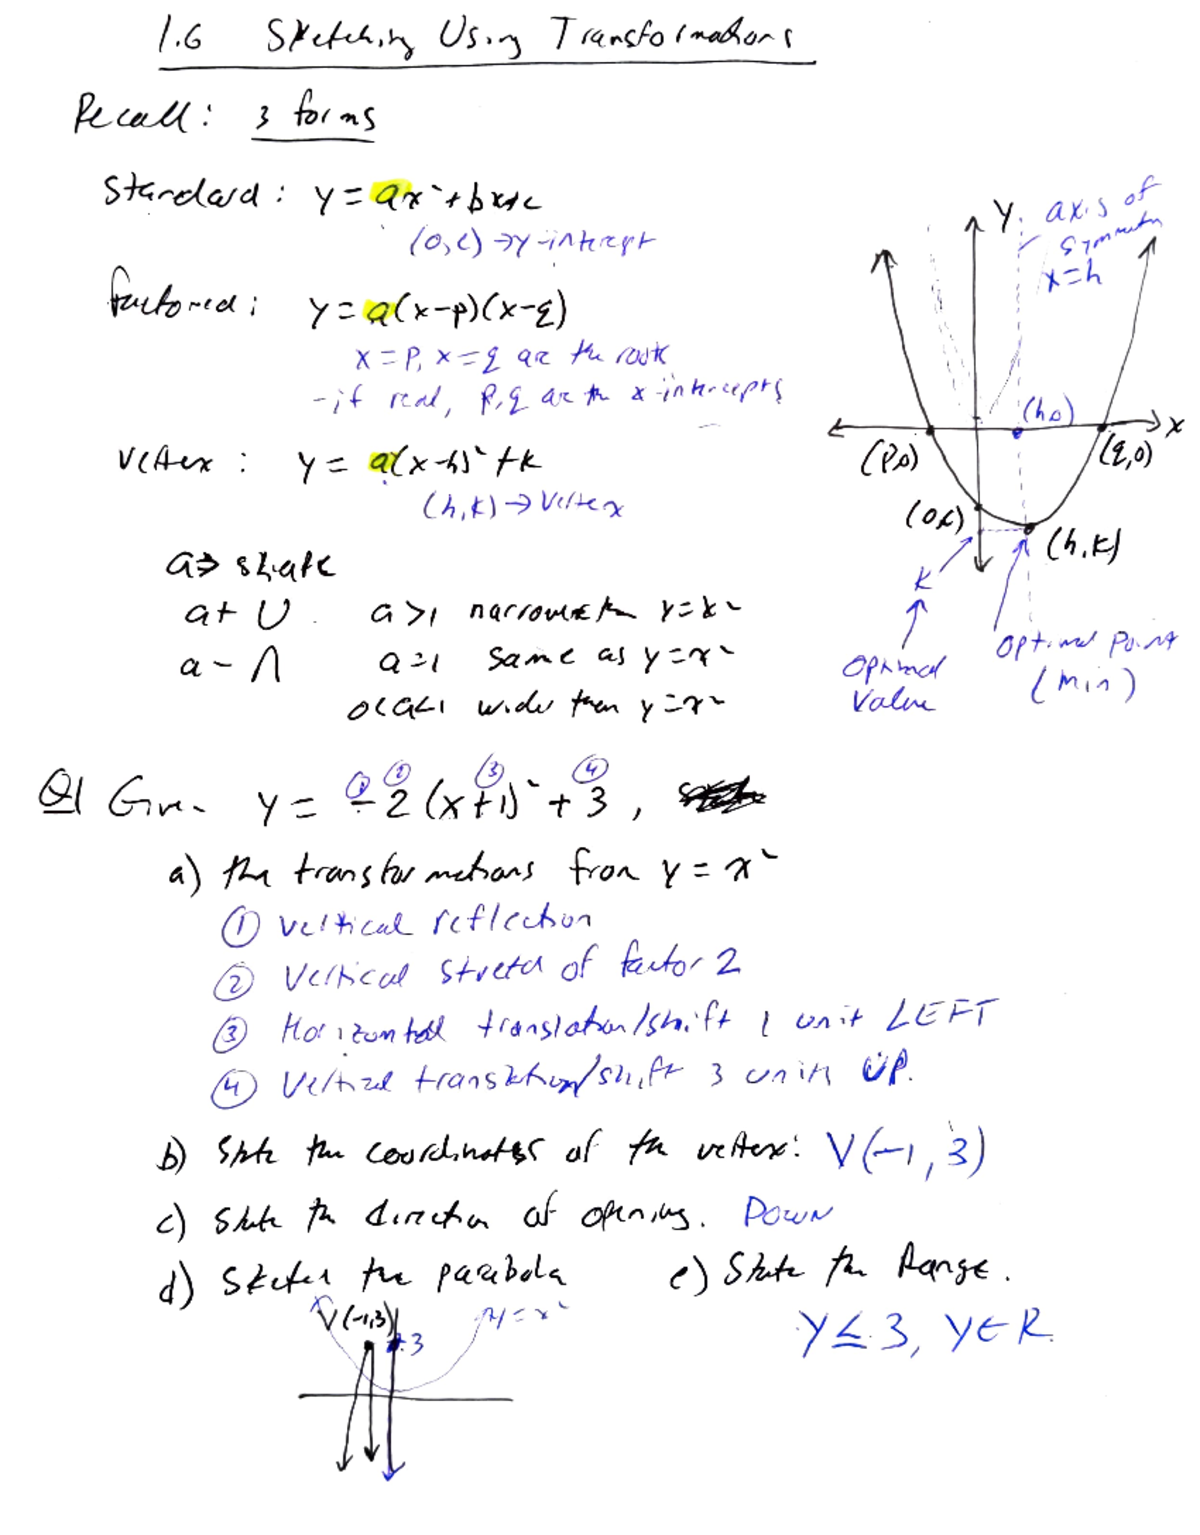 1.6 Sketching Using Transformations
Recall: 3 forms
Standard: y = ax² + bx + c
(0,c) → y-intercept
factored: y = a(x-p)(x-q)
x = p, x = q are the roots
- if real, p,q are the x-intercepts
Vertex: y = a(x-h)² + k
(h,k) → Vertex
a ⇒ shape
a + ∪ a>1 narrower than y=x²
a - ∩ a=1 same as y=x²
0<a<1 wider than y=x²
y axis of
symmetry
x=h
(h,0)
x
(p,0) (q,0)
(0,c) (h,k)
k
Optimal Value
Optimal Point
(min)
Q1 Given y = -2(x+1)² + 3,
① ② ③ ④
a) the transformations from y = x²
① Vertical reflection
② Vertical stretch of factor 2
③ Horizontal translation/shift 1 unit LEFT
④ Vertical translation/shift 3 units UP.
b) State the coordinates of the vertex: V(-1,3)
c) State the direction of opening. DOWN
d) Sketch the parabola e) State the Range.
V(-1,3) y=x²
3
y ≤ 3, y ∈ R